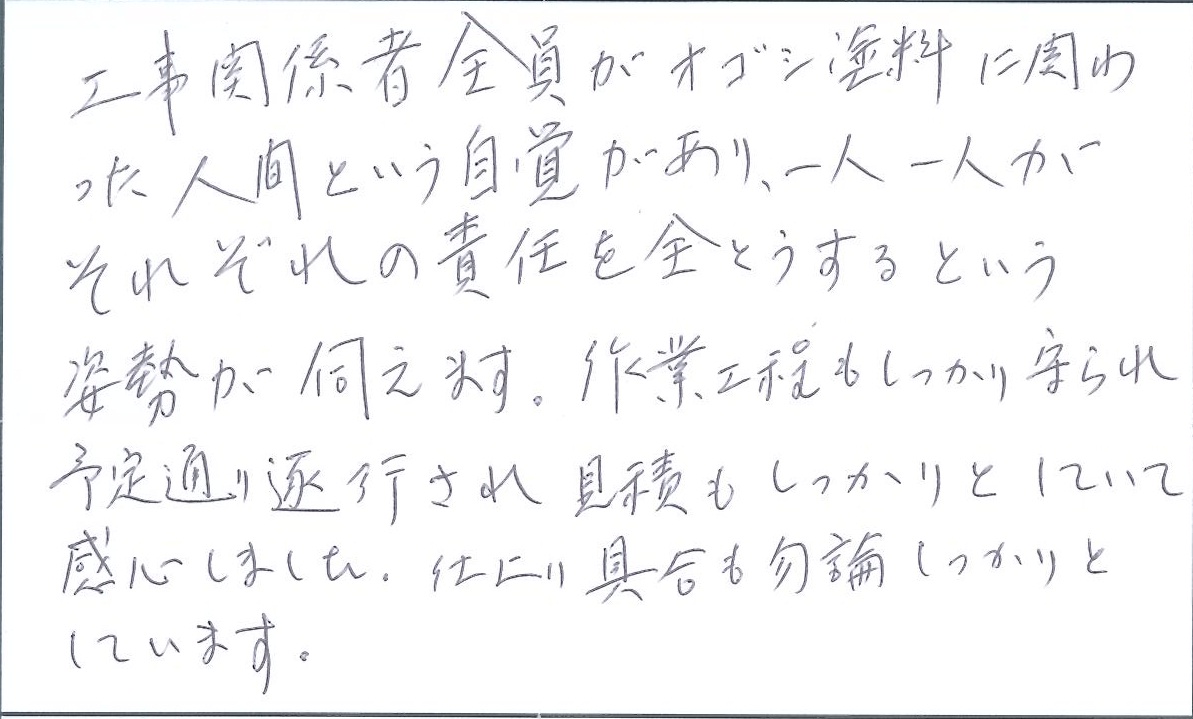 工事関係者全員がオゴシ塗料に関わ
った人間という自覚があり、一人一人が
それぞれの責任を全とうするという
姿勢が伺えます。作業工程もしっかり守られ
予定通り逐行され見積もしっかりとしていて
感心しました。仕上り具合も勿論しっかりと
しています。